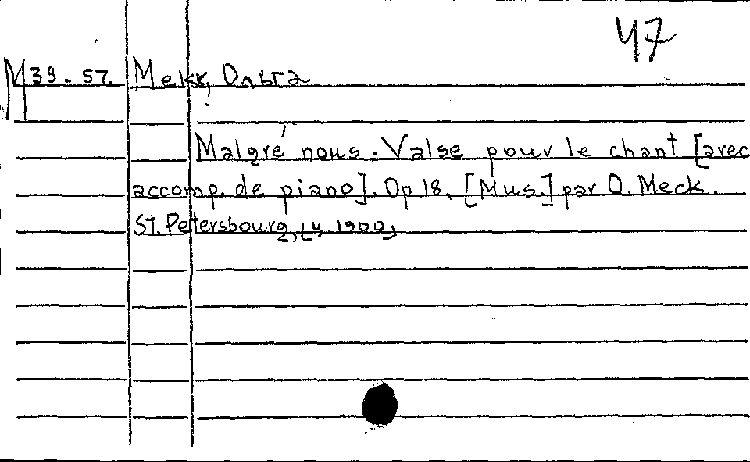 47
M 39-57. Мекк, Ольга
Malgré nous. Valse pour le chant [avec
accomp. de piano]. Op 18. [Mus.] par O. Meck.
St. Petersbourg,